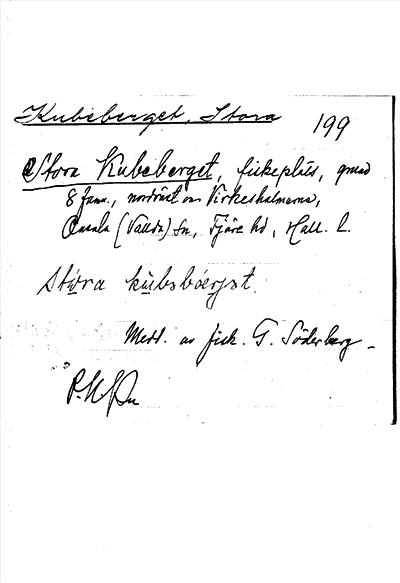 Kubeberget, Stora
199
Stora Kubeberget, fiskeplats, grund
8 famn., nordväst om Virkesholmarna,
Onsala (Vallda) sn, Fjäre hd, Hall. l.
stóra kubsbóerjst.
Medd. av fisk. G. Söderberg